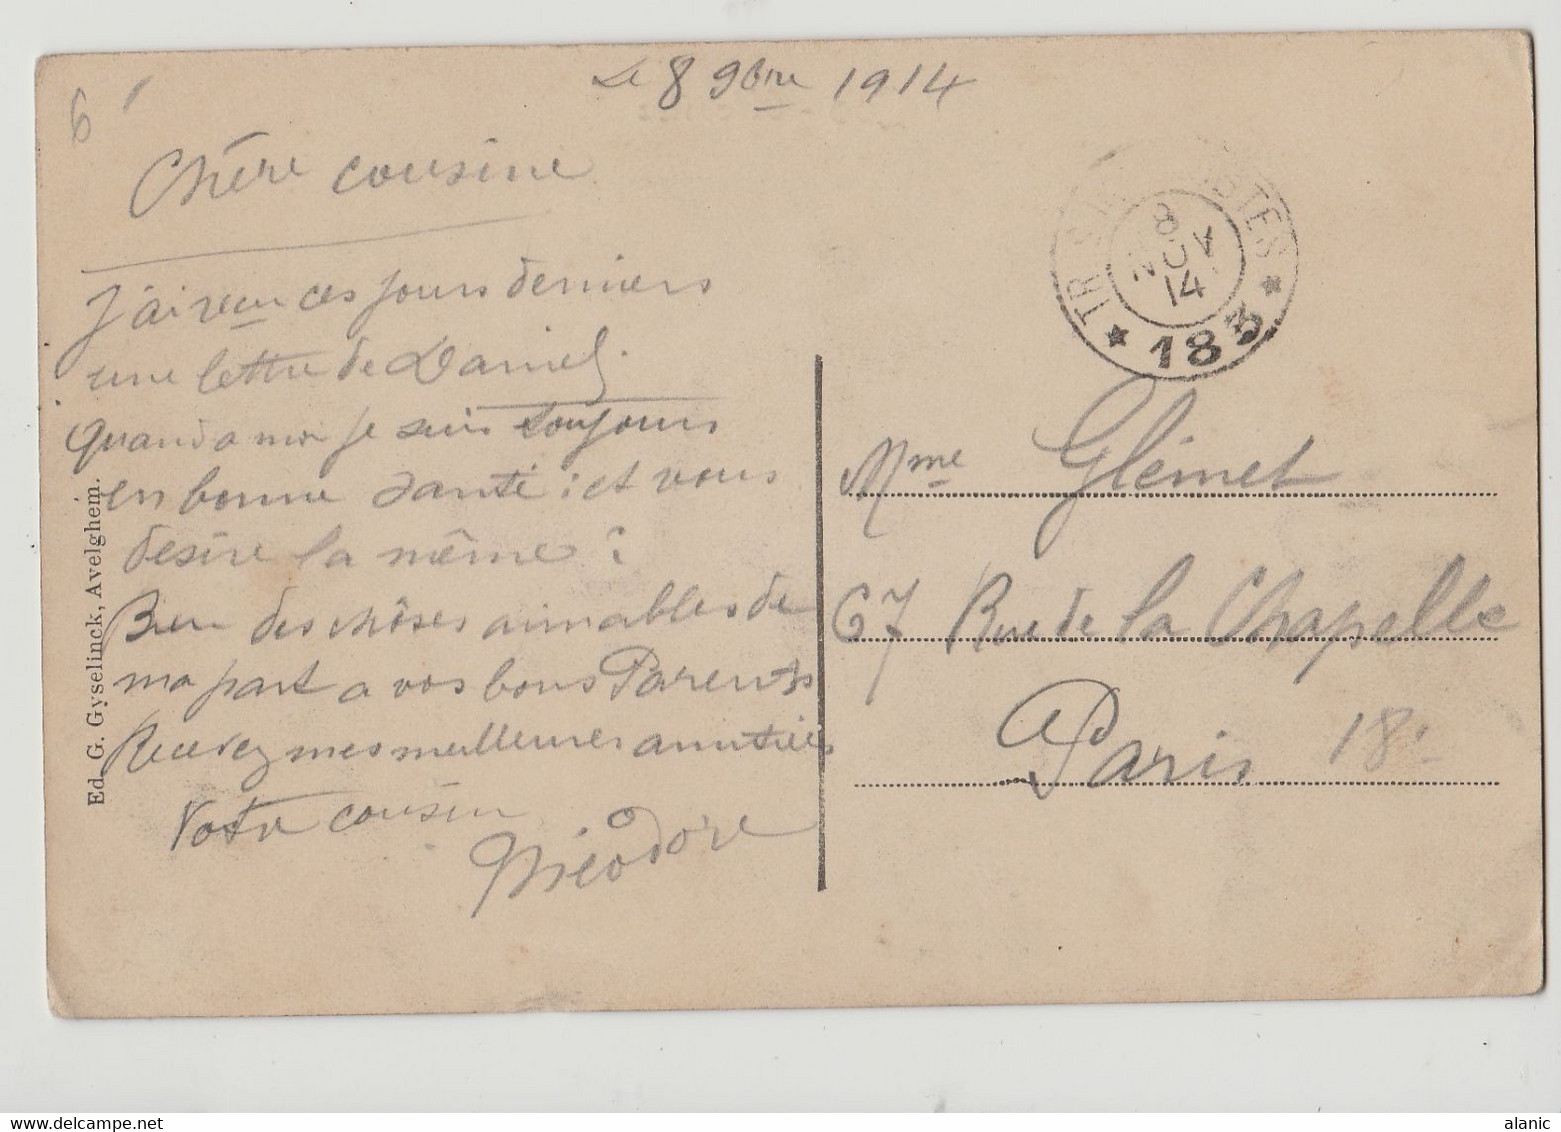 6
Le 8 9bre 1914
Chère cousine
J'ai reçu ces jours derniers
une lettre de Daniel.
quand a moi je suis toujours
en bonne santé : et vous
desire la même :
Bien des chôses aimables de
ma part a vos bons Parents
Recevez mes meilleures amitiés
Votre cousin
Théodore
Ed. G. Gyselinck, Avelghem.
TRÉSOR POSTES
8
NOV
14
* 183 *
Mme Glémet
67 Rue de la Chapelle
Paris 18e
delcampe.net
alanic